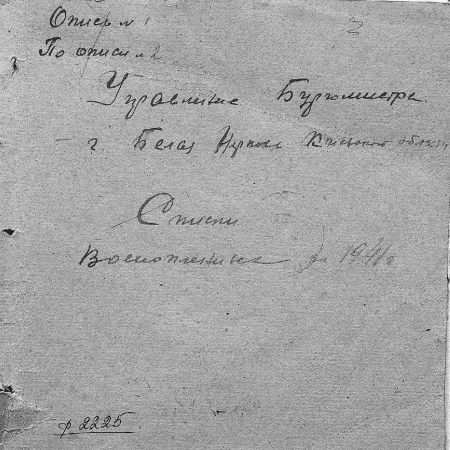 Опись № 1
По описи № 2
2
Управление Бургомистра
г. Белая Церковь Киевской области
Списки
Военопленных за 1941 г
ф 2225